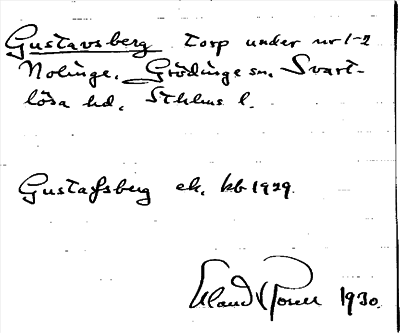 Gustavsberg torp under nr 1-2
Nolinge, Grödinge sn, Svart-
lösa hd, Sthlms l.
Gustafsberg ek. kb 1929.
Erland Rosell 1930.